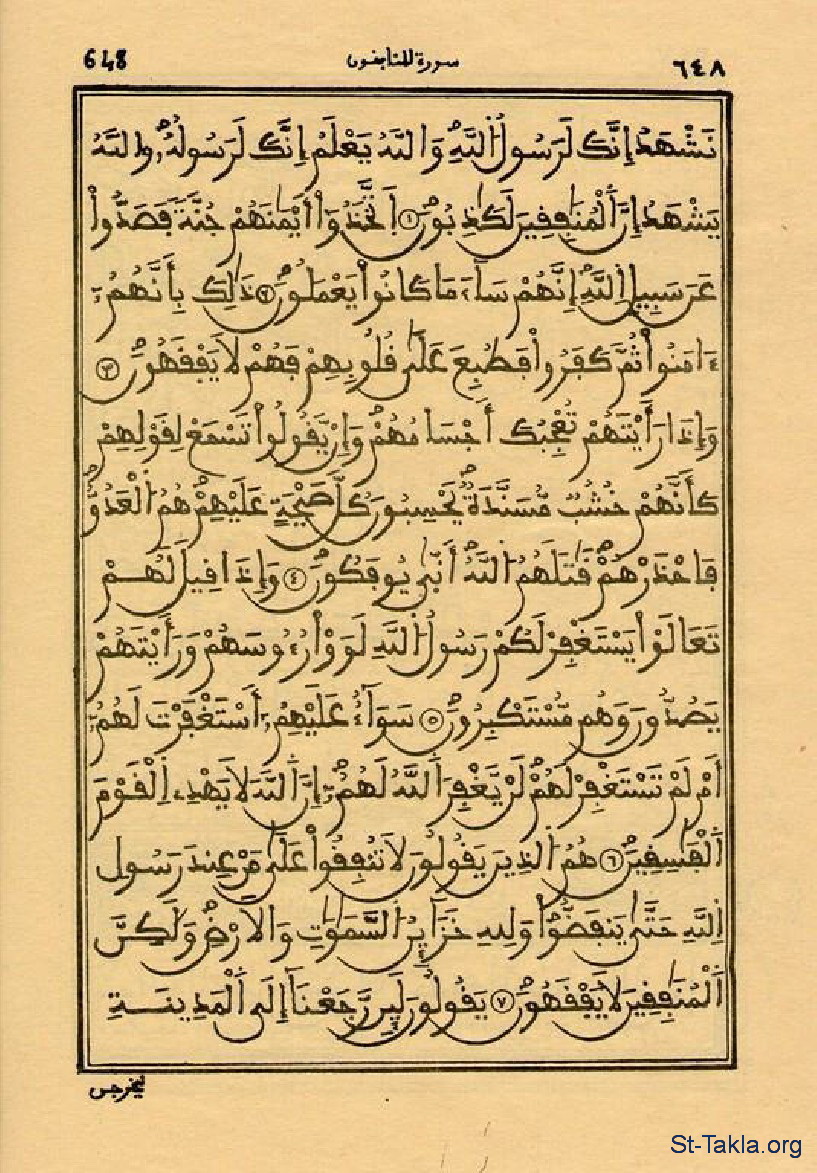 648 سورة المنافقون ٦٤٨
نَشْهَدُ إِنَّكَ لَرَسُولُ اللَّهِ وَاللَّهُ يَعْلَمُ إِنَّكَ لَرَسُولُهُ وَاللَّهُ
يَشْهَدُ إِنَّ الْمُنَٰفِقِينَ لَكَٰذِبُونَ ١ اَتَّخَذُوٓاْ أَيْمَٰنَهُمْ جُنَّةً فَصَدُّواْ
عَن سَبِيلِ اللَّهِ إِنَّهُمْ سَآءَ مَا كَانُواْ يَعْمَلُونَ ٢ ذَٰلِكَ بِأَنَّهُمُۥٓ
ءَامَنُواْ ثُمَّ كَفَرُواْ فَطُبِعَ عَلَىٰ قُلُوبِهِمْ فَهُمْ لَا يَفْقَهُونَ ٣
وَإِذَا رَأَيْتَهُمْ تُعْجِبُكَ أَجْسَامُهُمْ وَإِنْ يَّقُولُواْ تَسْمَعْ لِقَوْلِهِمْ
كَأَنَّهُمْ خُشُبٌ مُّسَنَّدَةٌ يَحْسِبُونَ كُلَّ صَيْحَةٍ عَلَيْهِمْ هُمُ الْعَدُوُّ
فَاحْذَرْهُمْ قَٰتَلَهُمُ اللَّهُ أَنَّىٰ يُوفَكُونَ ٤ وَإِذَا قِيلَ لَهُمْ
تَعَالَوْاْ يَسْتَغْفِرْ لَكُمْ رَسُولُ اللَّهِ لَوَوْاْ رُءُوسَهُمْ وَرَأَيْتَهُمْ
يَصُدُّونَ وَهُم مُّسْتَكْبِرُونَ ٥ سَوَآءٌ عَلَيْهِمُۥٓ أَسْتَغْفَرْتَ لَهُمُۥٓ
أَمْ لَمْ تَسْتَغْفِرْ لَهُمْ لَنْ يَّغْفِرَ اللَّهُ لَهُمُۥٓ إِنَّ اللَّهَ لَا يَهْدِے اِلْقَوْمَ
اَلْفَٰسِقِينَ ٦ هُمُ الذِينَ يَقُولُونَ لَا تُنفِقُواْ عَلَىٰ مَنْ عِندَ رَسُولِ
اِللَّهِ حَتَّىٰ يَنفَضُّواْ وَلِلهِ خَزَآئِنُ السَّمَٰوَٰتِ وَالَارْضِ وَلَٰكِنَّ
اَلْمُنَٰفِقِينَ لَا يَفْقَهُونَ ٧ يَقُولُونَ لَئِن رَّجَعْنَآ إِلَى اَلْمَدِينَةِ
ليخرجن
St-Takla.org